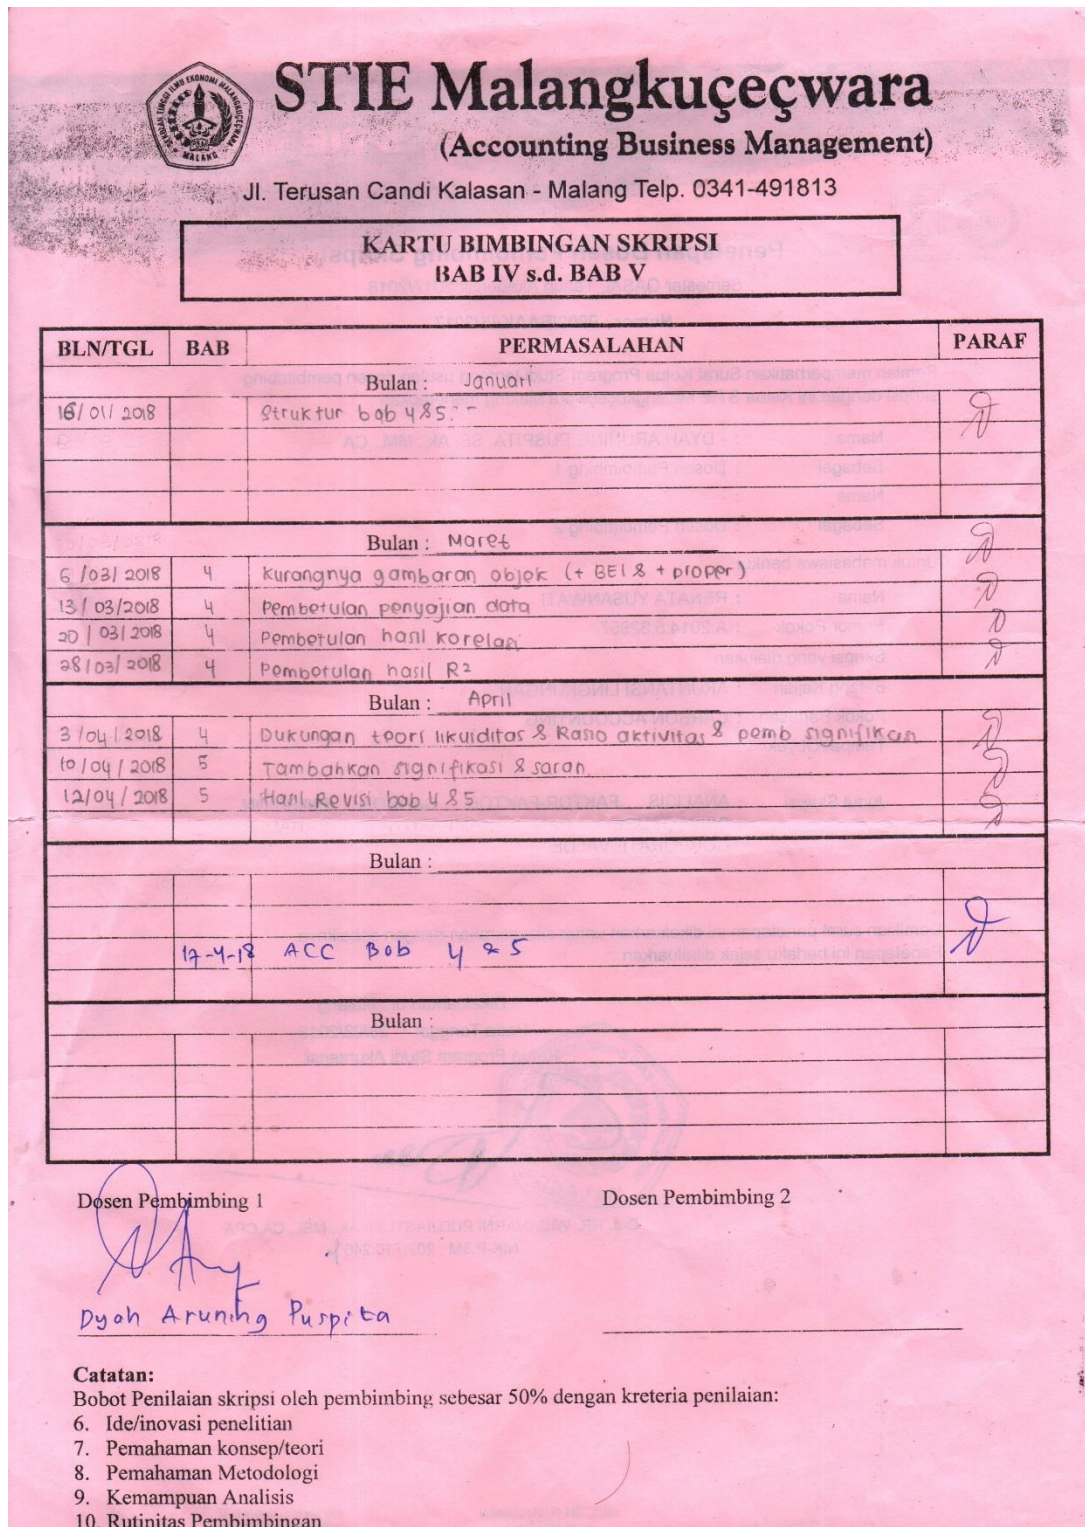 SEKOLAH TINGGI ILMU EKONOMI MALANGKUCECWARA
MALANG
STIE Malangkuçeçwara
(Accounting Business Management)
Jl. Terusan Candi Kalasan - Malang Telp. 0341-491813
KARTU BIMBINGAN SKRIPSI
BAB IV s.d. BAB V
BLN/TGL BAB PERMASALAHAN PARAF
Bulan : Januari
16/01/2018 Struktur bab 4 & 5
Bulan : Maret
6/03/2018 4 Kurangnya gambaran objek (+ BEI & + proper)
13/03/2018 4 Pembetulan penyajian data
20/03/2018 4 Pembetulan hasil korelasi
28/03/2018 4 Pembetulan hasil R²
Bulan : April
3/04/2018 4 Dukungan teori likuiditas & Rasio aktivitas & pemb signifikan
10/04/2018 5 Tambahkan signifikasi & saran
12/04/2018 5 Hasil Revisi bab 4 & 5
Bulan :
17-4-18 ACC Bab 4 & 5
Bulan :
Dosen Pembimbing 1 Dosen Pembimbing 2
Dyah Aruning Puspita
Catatan:
Bobot Penilaian skripsi oleh pembimbing sebesar 50% dengan kreteria penilaian:
6. Ide/inovasi penelitian
7. Pemahaman konsep/teori
8. Pemahaman Metodologi
9. Kemampuan Analisis
10. Rutinitas Pembimbingan